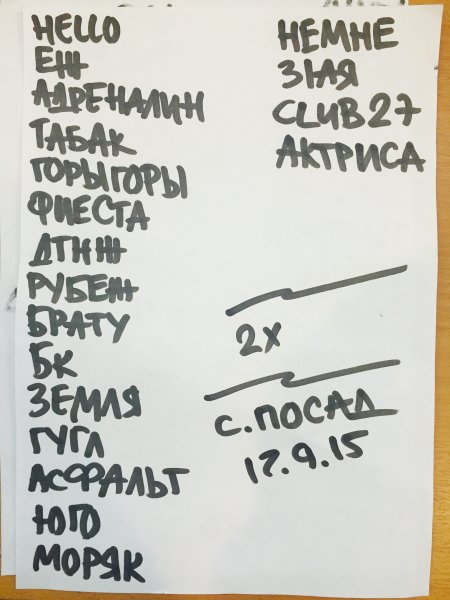 HELLO
ЕЖ
АДРЕНАЛИН
ТАБАК
ГОРЫГОРЫ
ФИЕСТА
ДТНЖ
РУБЕЖ
БРАТУ
БК
ЗЕМЛЯ
ГУГЛ
АСФАЛЬТ
ЮГО
МОРЯК
НЕМНЕ
31АЯ
CLUB27
АКТРИСА
2X
С.ПОСАД
17.9.15